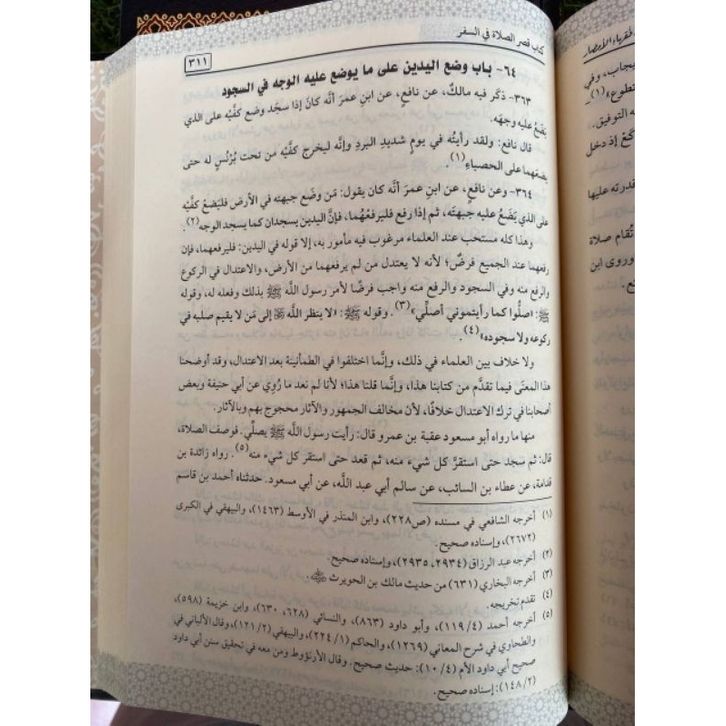 كتاب قصر الصلاة في السفر
٣١١
٦٤- باب وضع اليدين على ما يوضع عليه الوجه في السجود
٣٦٣- ذكر فيه مالك، عن نافع، عن ابن عمر أنَّه كان إذا سجد وضع كفَّيْه على الذي
يَضَعُ عليه وجهه.
قال نافع: ولقد رأيتُه في يومٍ شديدِ البردِ وإنَّه ليخرج كفَّيْه من تحت بُرْنُسٍ له حتى
يضعهما على الحصباءِ(١).
٣٦٤- وعن نافع، عن ابن عمرَ أنَّه كان يقول: مَن وضَع جبهته في الأرض فليَضعْ كفَّيْه
على الذي يَضَعُ عليه جبهتَه، ثم إذا رفع فليرفعْهُما، فإنَّ اليدين يسجدان كما يسجد الوجه(٢).
وهذا كله مستحب عند العلماء مرغوب فيه مأمور به، إلا قوله في اليدين: فليرفعهما، فإن
رفعهما عند الجميع فرضٌ؛ لأنه لا يعتدل من لم يرفعهما من الأرض، والاعتدال في الركوع
والرفع منه وفي السجود والرفع منه واجب فرضًا لأمر رسول اللَّه ﷺ بذلك وفعله له، وقوله
ﷺ: «صلُّوا كما رأيتموني أصلِّي»(٣). وقوله ﷺ: «لا ينظر اللَّه ﷻ إلى مَن لا يقيم صلبه في
ركوعه ولا سجوده»(٤).
ولا خلاف بين العلماء في ذلك، وإنَّما اختلفوا في الطمأنينة بعد الاعتدال، وقد أوضحنا
هذا المعنَى فيما تقدَّم من كتابنا هذا، وإنَّما قلنا هذا؛ لأنا لم نعد ما رُوِيَ عن أبي حنيفة وبعض
أصحابنا في ترك الاعتدال خلافًا، لأن مخالف الجمهور والآثار محجوج بهم وبالآثار.
منها ما رواه أبو مسعود عقبة بن عمرو قال: رأيت رسول اللَّه ﷺ يصلِّي. فوصف الصلاة،
قال: ثم سجد حتى استقرَّ كل شيء منه، ثم قعد حتى استقر كل شيء منه(٥). رواه زائدة بن
قدامة، عن عطاء بن السائب، عن سالم أبي عبد اللَّه، عن أبي مسعود. حدثناه أحمد بن قاسم
(١) أخرجه الشافعي في مسنده (ص٢٢٨)، وابن المنذر في الأوسط (١٤٦٣)، والبيهقي في الكبرى
(٢٦٧٢)، وإسناده صحيح.
(٢) أخرجه عبد الرزاق (٢٩٣٤، ٢٩٣٥)، وإسناده صحيح.
(٣) أخرجه البخاري (٦٣١) من حديث مالك بن الحويرث ﷺ.
(٤) تقدم تخريجه.
(٥) أخرجه أحمد (١١٩/٤)، وأبو داود (٨٦٣)، والنسائي (٦٢٨، ٦٣٠)، وابن خزيمة (٥٩٨)،
والطحاوي في شرح المعاني (١٢٦٩)، والحاكم (٢٢٤/١)، والبيهقي (١٢١/٢)، وقال الألباني في
صحيح أبي داود الأم (١٠/٤): حديث صحيح. وقال الأرنؤوط ومن معه في تحقيق سنن أبي داود
(١٤٨/٢): إسناده صحيح.
فقهاء الأمصار
يجاب، وفي
تطوع»(١).
ه التوفيق.
كَعْ إذ دخل
قدرته عليها
تُقام صلاة
وروى ابن